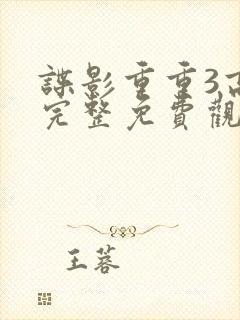 諜影重重3高
完整免費觀
王蓉